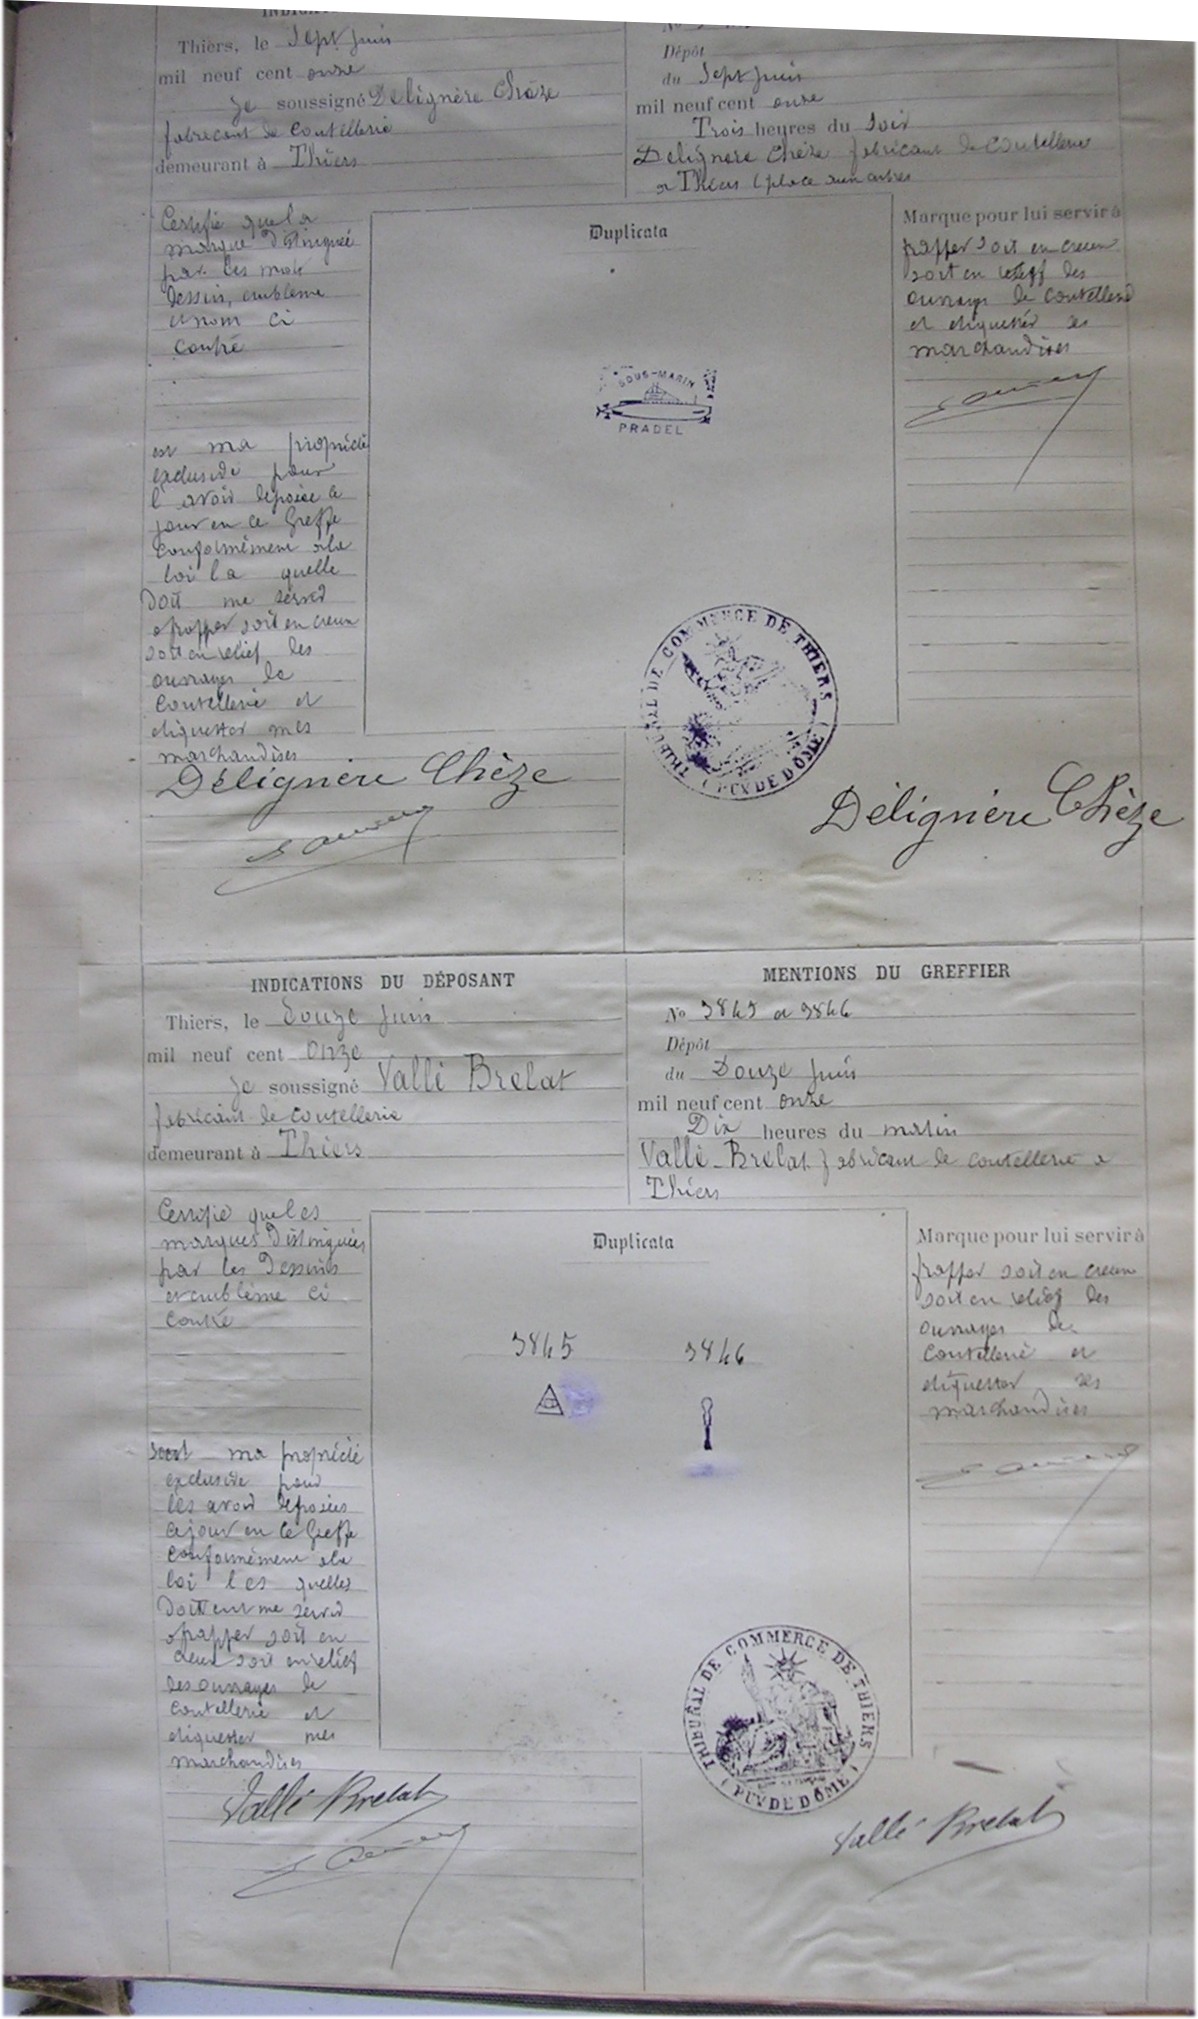 Thiers, le Sept juin
mil neuf cent onze
Je soussigné Délignère Chèze
fabricant de coutellerie
demeurant à Thiers
Dépôt
du Sept juin
mil neuf cent onze
Trois heures du Soir
Délignère Chèze fabricant de coutellerie
a Thiers (place aux arbres
Certifie que la
marque distinguée
par les mots
dessin, emblème
et nom ci
contre
est ma propriété
exclusive pour
l'avoir déposée ce
jour en ce Greffe
conformément a la
loi la quelle
doit me servir
a frapper soit en creux
soit en relief des
ouvrages de
coutellerie et
etiquetter mes
marchandises
Délignère Chèze
Duplicata
SOUS-MARIN
PRADEL
TRIBUNAL DE COMMERCE DE THIERS
(PUY DE DÔME)
Marque pour lui servir à
frapper soit en creux
soit en relief des
ouvrages de coutellerie
et etiquetter ses
marchandises
Délignère Chèze
INDICATIONS DU DÉPOSANT
Thiers, le Douze juin
mil neuf cent onze
Je soussigné Vallé Brelat
fabricant de coutellerie
demeurant à Thiers
MENTIONS DU GREFFIER
No 3845 a 3846
Dépôt
du Douze juin
mil neuf cent onze
Dix heures du matin
Vallé-Brelat fabricant de coutellerie a
Thiers
Certifie que les
marques distinguées
par les Dessins
et emblème ci
contre
sont ma propriété
exclusive pour
les avoir déposées
ce jour en ce Greffe
conformément a la
loi les quelles
doivent me servir
a frapper soit en
creux soit en relief
des ouvrages de
coutellerie et
etiquetter mes
marchandises
Vallé Brelat
Duplicata
3845 3846
TRIBUNAL DE COMMERCE DE THIERS
(PUY DE DÔME)
Marque pour lui servir à
frapper soit en creux
soit en relief des
ouvrages de
coutellerie et
etiquetter ses
marchandises
Vallé Brelat